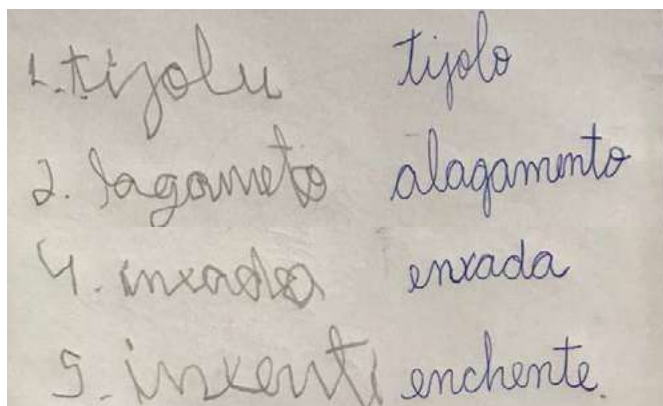 1. tijolu tijolo
2. lagameto alagamento
4. inxada enxada
5. inxenti enchente.